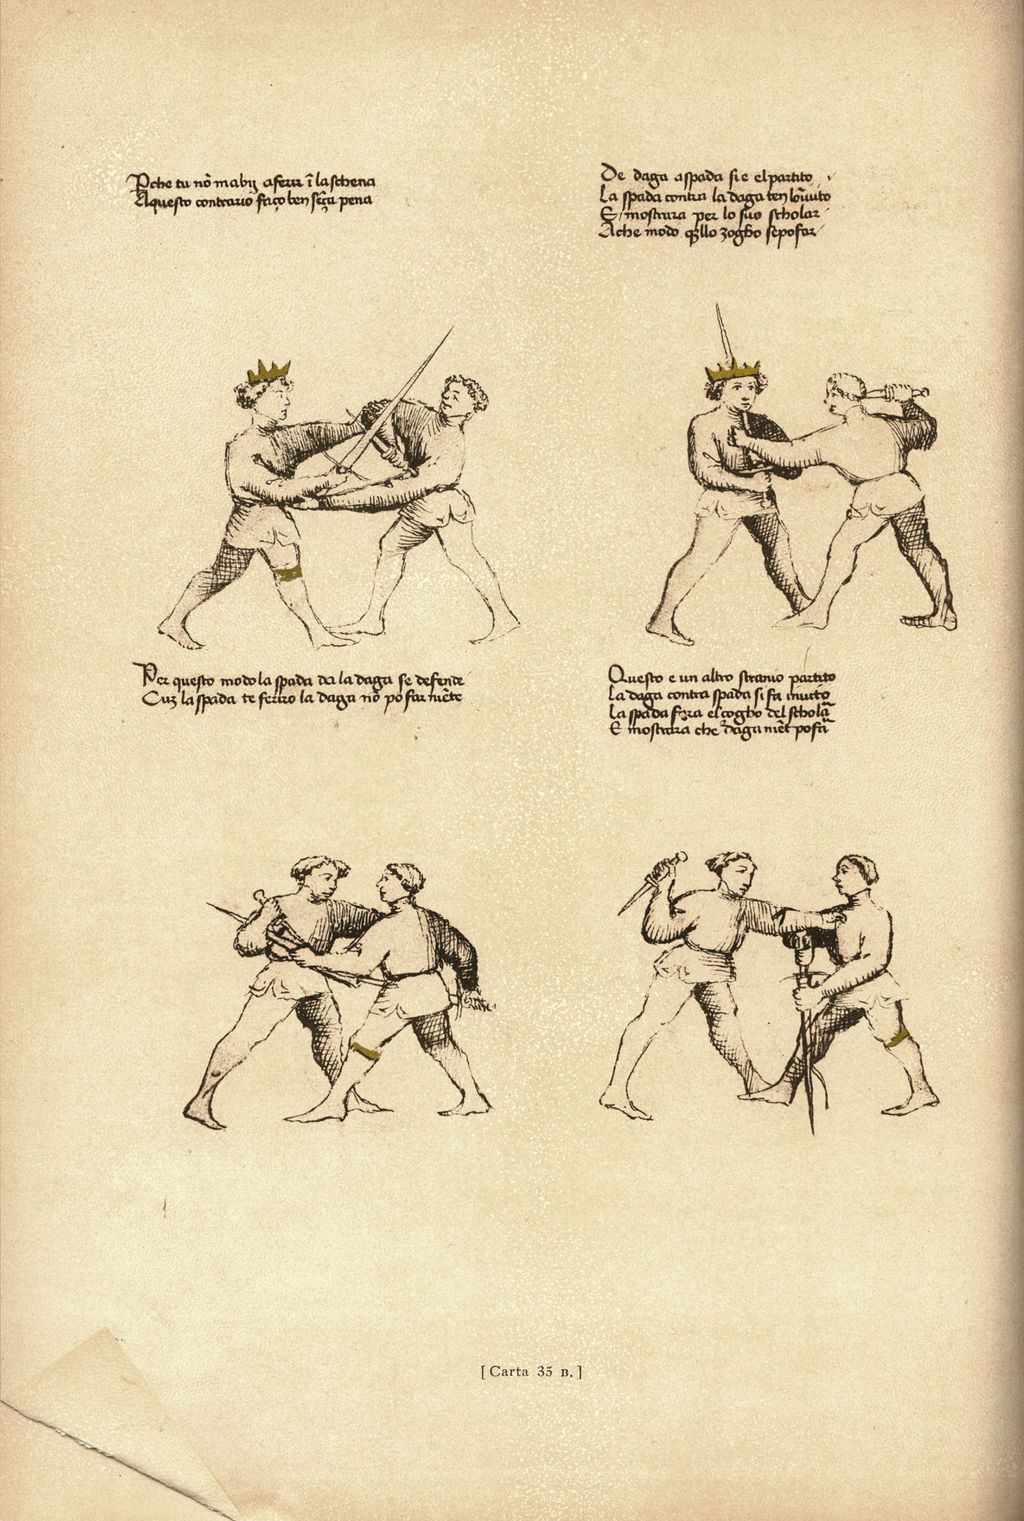 Pche tu nō mabij a ferir ī la schena
A questo contrario faço ben sēça pena
De daga a spada sie el partito
La spada contra la daga ten lo īuito
E mostrara per lo suo scholar
A che modo q̄llo zogho se po far
Per questo modo la spada da la daga se defende
Cuȝ la spada te feriro la daga nō po far niēte
Questo e un altro stranio partito
La daga contra spada si fa inuito
La spada el cogho del scholā
E mostrara che daga niēt po fā
[Carta 35 B.]